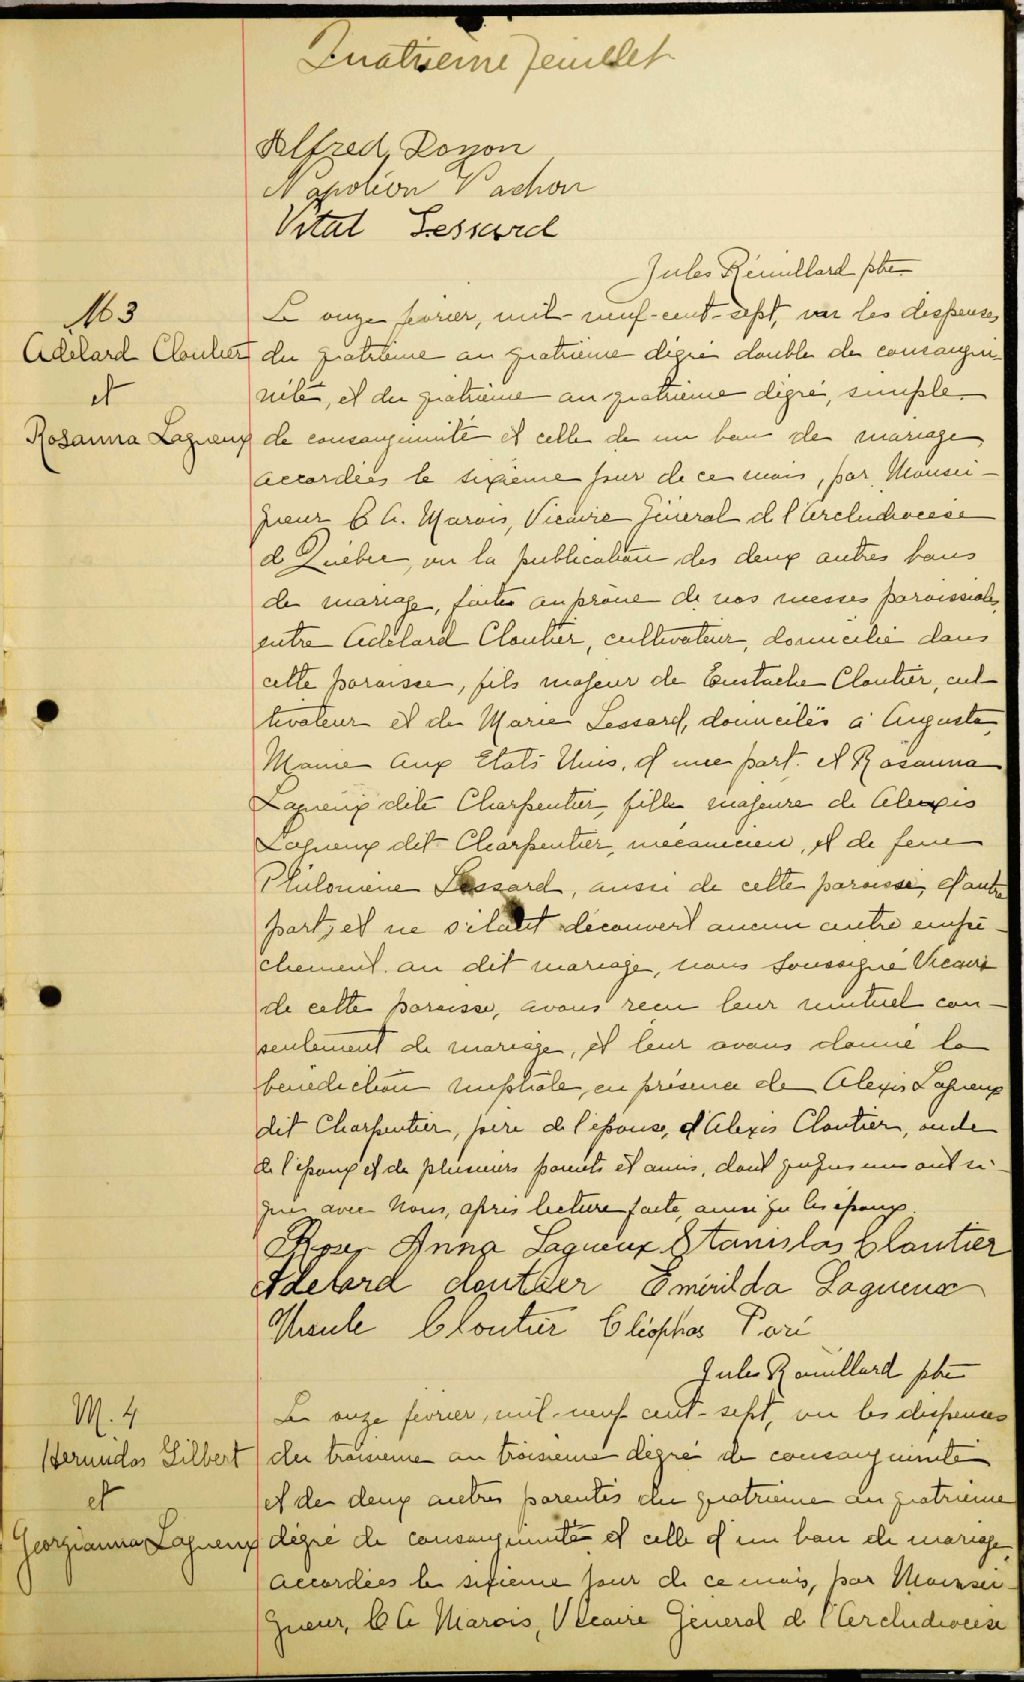 Quatrième feuillet
Alfred Doyon
Napoléon Vachon
Vital Lessard
Jules Rouillard ptre
M 3
Adélard Cloutier
et
Rosanna Lagueux
Le onze février, mil-neuf-cent-sept, vu les dispenses
du quatrième au quatrième dégré double de consangui-
nité, et du quatrième au quatrième dégré, simple
de consanguinité et celle de un ban de mariage,
accordées le sixième jour de ce mois, par Monsei-
gneur C A. Marois, Vicaire Général d l'Archidiocèse
d Québec, vu la publication des deux autres bans
de mariage, faite au prône de nos messes paroissiales,
entre Adélard Cloutier, cultivateur, domicilié dans
cette paroisse, fils majeur de Eustache Cloutier, cul-
tivateur et de Marie Lessard, domiciliés à Augusta,
Maine aux Etats Unis, d'une part. et Rosanna
Lagueux dite Charpentier, fille majeure de Alexis
Lagueux dit Charpentier, mécanicien, et de feue
Philomène Lessard, aussi de cette paroisse, d'autre
part, et ne s'étant découvert aucun autre empê-
chement au dit mariage, nous soussigné Vicaire
de cette paroisse, avons reçu leur mutuel con-
sentement de mariage, et leur avons donné la
bénédiction nuptiale, en présence de Alexis Lagueux
dit Charpentier, père de l'épouse, d'Alexis Cloutier, oncle
de l'époux et de plusieurs parents et amis, dont quelques uns ont si-
gnés avec Nous, après lecture faite, ainsi que les époux.
Rose Anna Lagueux Stanislas Cloutier
Adelard cloutier Emérilda Lagueux
Ursule Cloutier Cléophas Paré
Jules Rouillard ptre
M. 4
Hermidas Gilbert
et
Georgianna Lagueux
Le onze février, mil-neuf cent-sept, vu les dispenses
du troisième au troisième dégré de consanguinité
et de deux autres parentés du quatrième au quatrième
dégré de consanguinité et celle d'un ban de mariage,
accordées le sixième jour de ce mois, par Monsei-
gneur, C A Marois, Vicaire Général d l'Archidiocèse